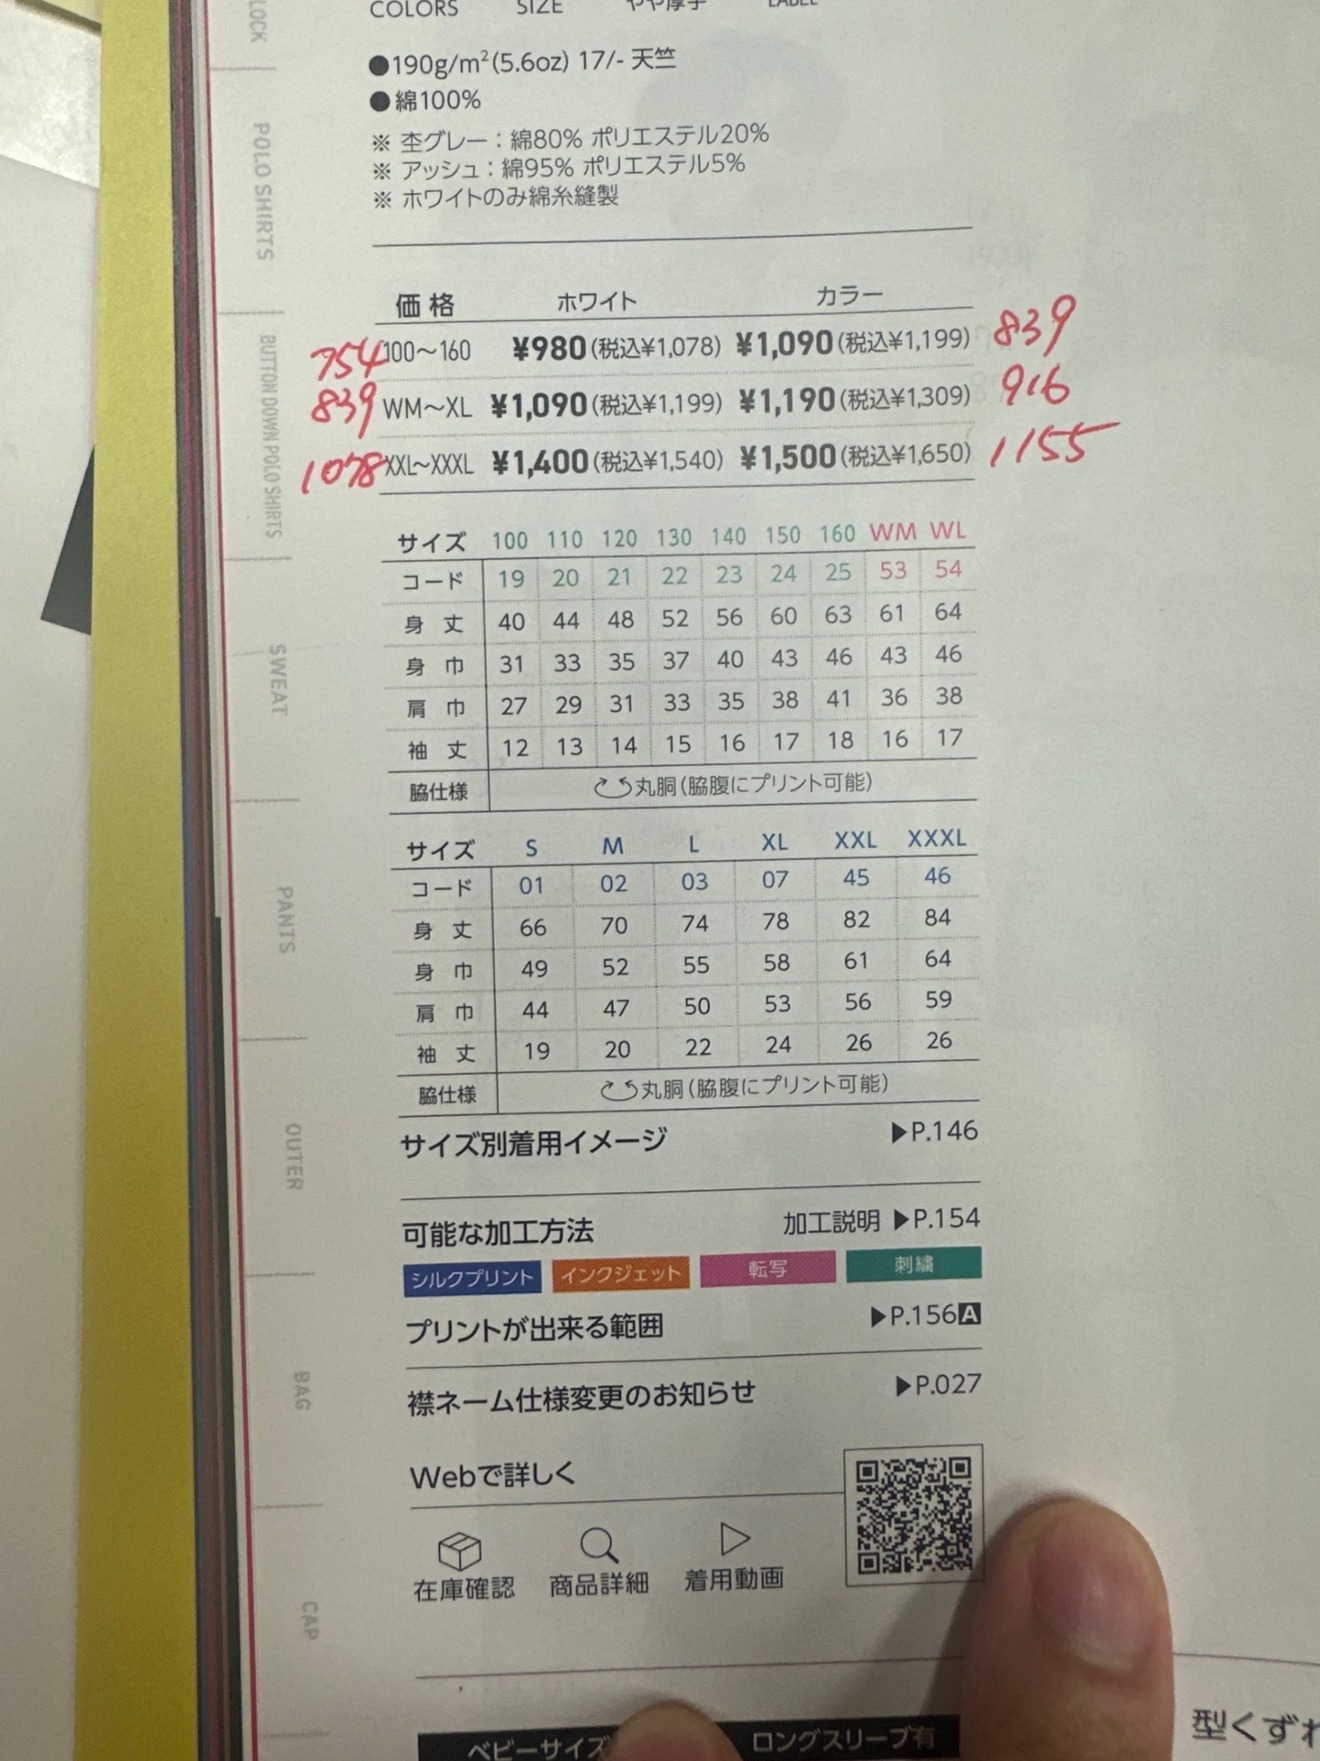 COLORS SIZE やや厚手 LABEL
LOCK
●190g/m²(5.6oz) 17/- 天竺
●綿100%
※ 杢グレー：綿80% ポリエステル20%
※ アッシュ：綿95% ポリエステル5%
※ ホワイトのみ綿糸縫製
POLO SHIRTS
価格 ホワイト カラー
754 100〜160 ¥980(税込¥1,078) ¥1,090(税込¥1,199) 839
839 WM〜XL ¥1,090(税込¥1,199) ¥1,190(税込¥1,309) 916
1078 XXL〜XXXL ¥1,400(税込¥1,540) ¥1,500(税込¥1,650) 1155
BUTTON DOWN POLO SHIRTS
サイズ 100 110 120 130 140 150 160 WM WL
コード 19 20 21 22 23 24 25 53 54
身丈 40 44 48 52 56 60 63 61 64
身巾 31 33 35 37 40 43 46 43 46
肩巾 27 29 31 33 35 38 41 36 38
袖丈 12 13 14 15 16 17 18 16 17
脇仕様 丸胴(脇腹にプリント可能)
SWEAT
サイズ S M L XL XXL XXXL
コード 01 02 03 07 45 46
身丈 66 70 74 78 82 84
身巾 49 52 55 58 61 64
肩巾 44 47 50 53 56 59
袖丈 19 20 22 24 26 26
脇仕様 丸胴(脇腹にプリント可能)
PANTS
サイズ別着用イメージ ▶P.146
OUTER
可能な加工方法 加工説明 ▶P.154
シルクプリント インクジェット 転写 刺繍
プリントが出来る範囲 ▶P.156A
襟ネーム仕様変更のお知らせ ▶P.027
BAG
Webで詳しく
在庫確認 商品詳細 着用動画
CAP
ベビーサイズ ロングスリーブ有
型くずれ